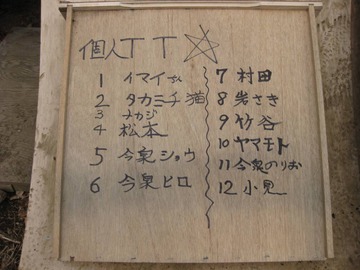 個人TT☆
1 イマイさん
2 タカミチ猫
3 ナカジ
4 松本
5 今泉ショウ
6 今泉ヒロ
7 村田
8 岩さき
9 竹谷
10 ヤマモト
11 今泉のりお
12 小見